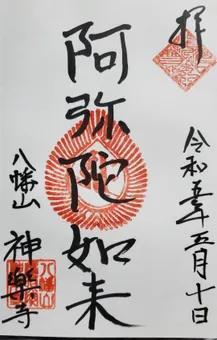 奉拝
令和五年五月十日
阿弥陀如来
八幡山
神樂寺